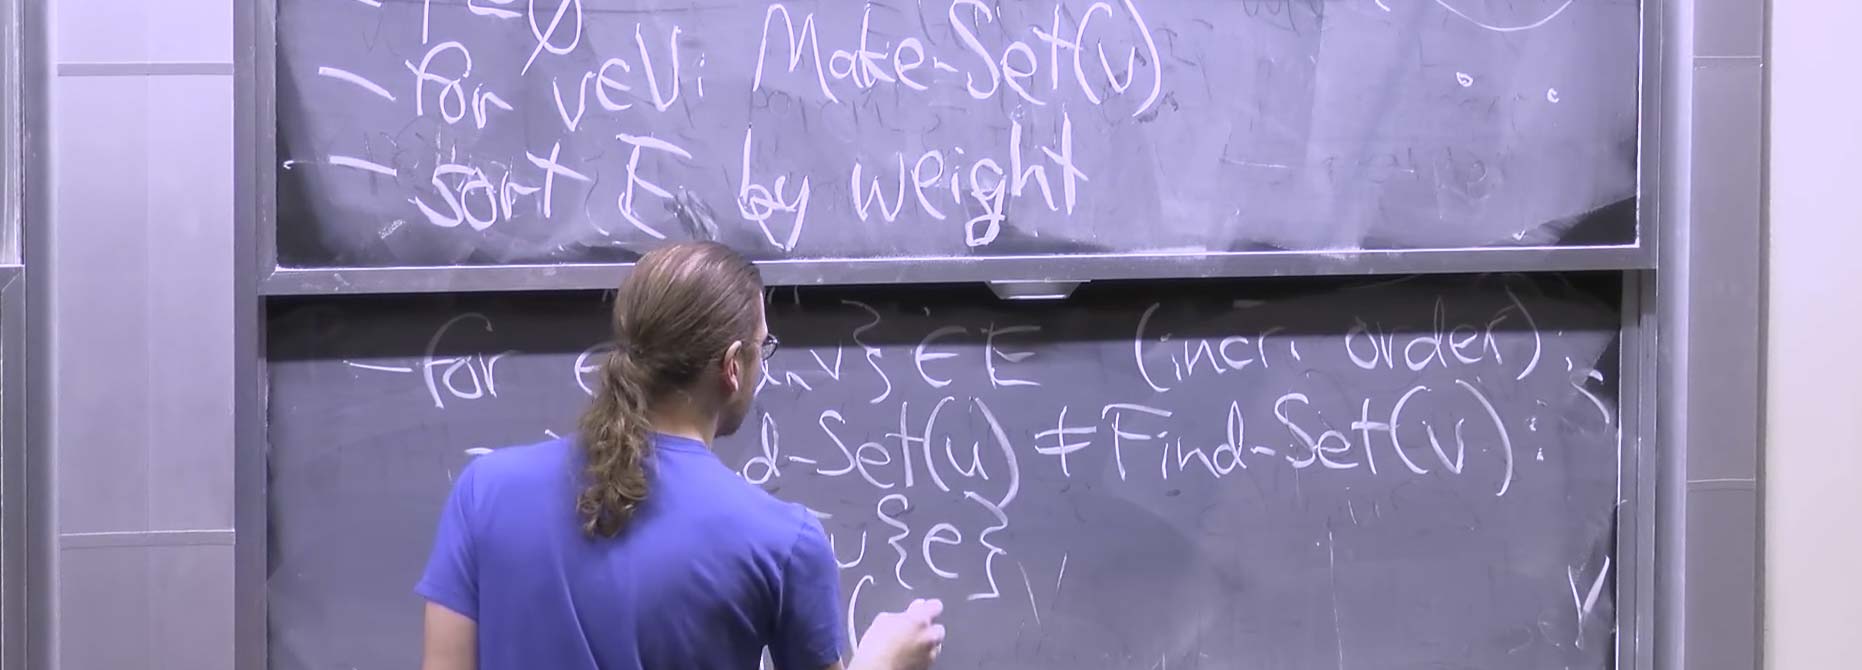 - T = ∅
- for v∈V: Make-Set(v)
- sort E by weight
- for e u,v} ∈ E (incr. order):
d-Set(u) ≠ Find-Set(v):
∪ {e}
(